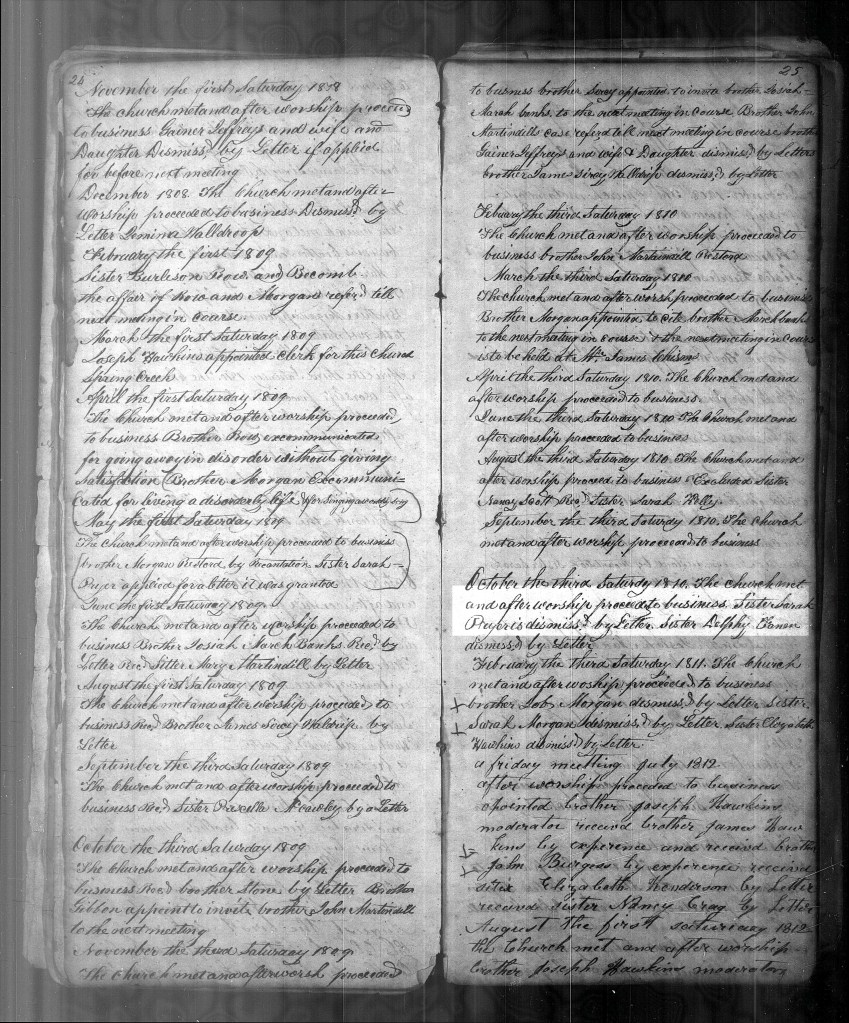 24
November the first Saturday 1808
The church met and after worship proceed
to business Griner Jeffreys and wife and
Daughter Dismissd by Letter if applied
for before next meeting
December 1808 The Church met and after
worship proceeded to business Dismissd by
Letter Walldroop
February the first 1809
Sister Burleson Row and Becomb
the affair of Row and Morgan referd till
next meting in course
March the first Saturday 1809
Joseph Hawkins appointed Clerk for this Church
Spring Creek
April the first Saturday 1809
The Church met and after worship proceeded
to business Brother Row excommunicated
for going away in disorder without giving
Satisfaction Brother Morgan Excommuni-
cated for living a disorderly life & for Singing
May the first Saturday 1809
The Church met and after worship proceeded to business
brother Morgan Restord by Recantation Sister Sarah
Pryer applied for a letter it was granted
June the first Saturday 1809
The Church met and after worship proceeded to
business Brother Josiah March Banks Recd by
Letter Recd Sister Mary Martindill by Letter
August the first Saturday 1809
The Church met and after worship proceeded to
business Recd Brother James Sircy Waldrip by
Letter
September the third Saturday 1809
The Church met and after worship proceeded to
business Recd Sister Priscilla McCawley by a Letter
October the third Saturday 1809
The Church met and after worship proceeded to
business Recd brother Stone by Letter Brother
Gibbon appoint to invite brother John Martindill
to the next meeting
November the third Saturday 1809
The Church met and after worsh proceeded
25
to business brother Sircy appointed to invite brother Josiah
March banks to the next meeting in course Brother John
Martindills case referd till next meeting in course brother
Gainer Jeffreys and wife & Daughter dismissd by Letter
brother Jame Sircy Waldrip dismissd by Letter
February the third Saturday 1810
The Church met and after worship proceeded to
business brother John Martindill Restord
March the third Saturday 1810
The church met and after worsh proceeded to business
Brother Morgan appointed to cite brother March banks
to the next meting in course & the next meeting in Course
is to be held at Wm James Chism
April the third Saturday 1810. The Church met and
after worship proceeded to business
June the third Saturday 1810 The Church met and
after worship proceeded to business
August the third Saturday 1810. The Church met and
after worship proceed to business & Excluded Sister
Nancy Scott Recd Sister Sarah Kelly
September the third Saturday 1810. The Church
met and after worship proceeded to business
October the third Saturday 1810. The church met
and after worship proceed to business Sister Sarah
Pryer is dismissd by Letter Sister Delphy
dismissd by Letter
February the third Saturday 1811. The Church
met and after woship proceeded to business
brother Job Morgan dismissd by Letter Sister
Sarah Morgan dismissd by Letter Sister Elizabeth
Hawkins dismissd by Letter
a friday meetting July 1812
after worship proceded to business
apointed brother joseph Hawkins
moderator receivd brother James Haw
kins by experence and receivd brother
John Burgess by experence receivd
sister Elizabeth Henderson by Letter
receivd sister Nancy Crag by Letter
August the first saturday 1812
the Church met and after worship
brother Joseph Hawkins moderator